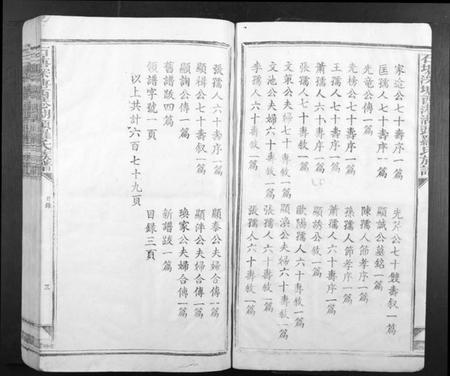 家進公七十壽序一篇
匡孺人七十壽序一篇
先黽公傳一篇
先榜公七十壽序一篇
王孺人七十壽序一篇
蕭孺人六十壽序一篇
張孺人七十壽敘一篇
文策公夫婦七十壽敘一篇
文池公夫婦六十壽敘一篇
李孺人六十壽敘一篇
先芹公七十雙壽敘一篇
顯誠公墓銘一篇
陳孺人節孝序一篇
孫孺人節孝序一篇
蕭孺人六十壽序一篇
顯謗公敘一篇
歐陽孺人六十壽敘一篇
顯渙公夫婦六十壽敘一篇
張孺人六十壽敘一篇
張孺人六十壽敘一篇
張孺人六十壽序一篇
顯楫公七十壽敘一篇
顯詢公傳一篇
舊譜跋四篇
領譜字號一頁
以上共計六百七十九頁
顯泰公夫婦合傳一篇
顯泮公夫婦合傳一篇
煥家公夫婦合傳一篇
新譜跋一篇
目錄三頁
目錄
三